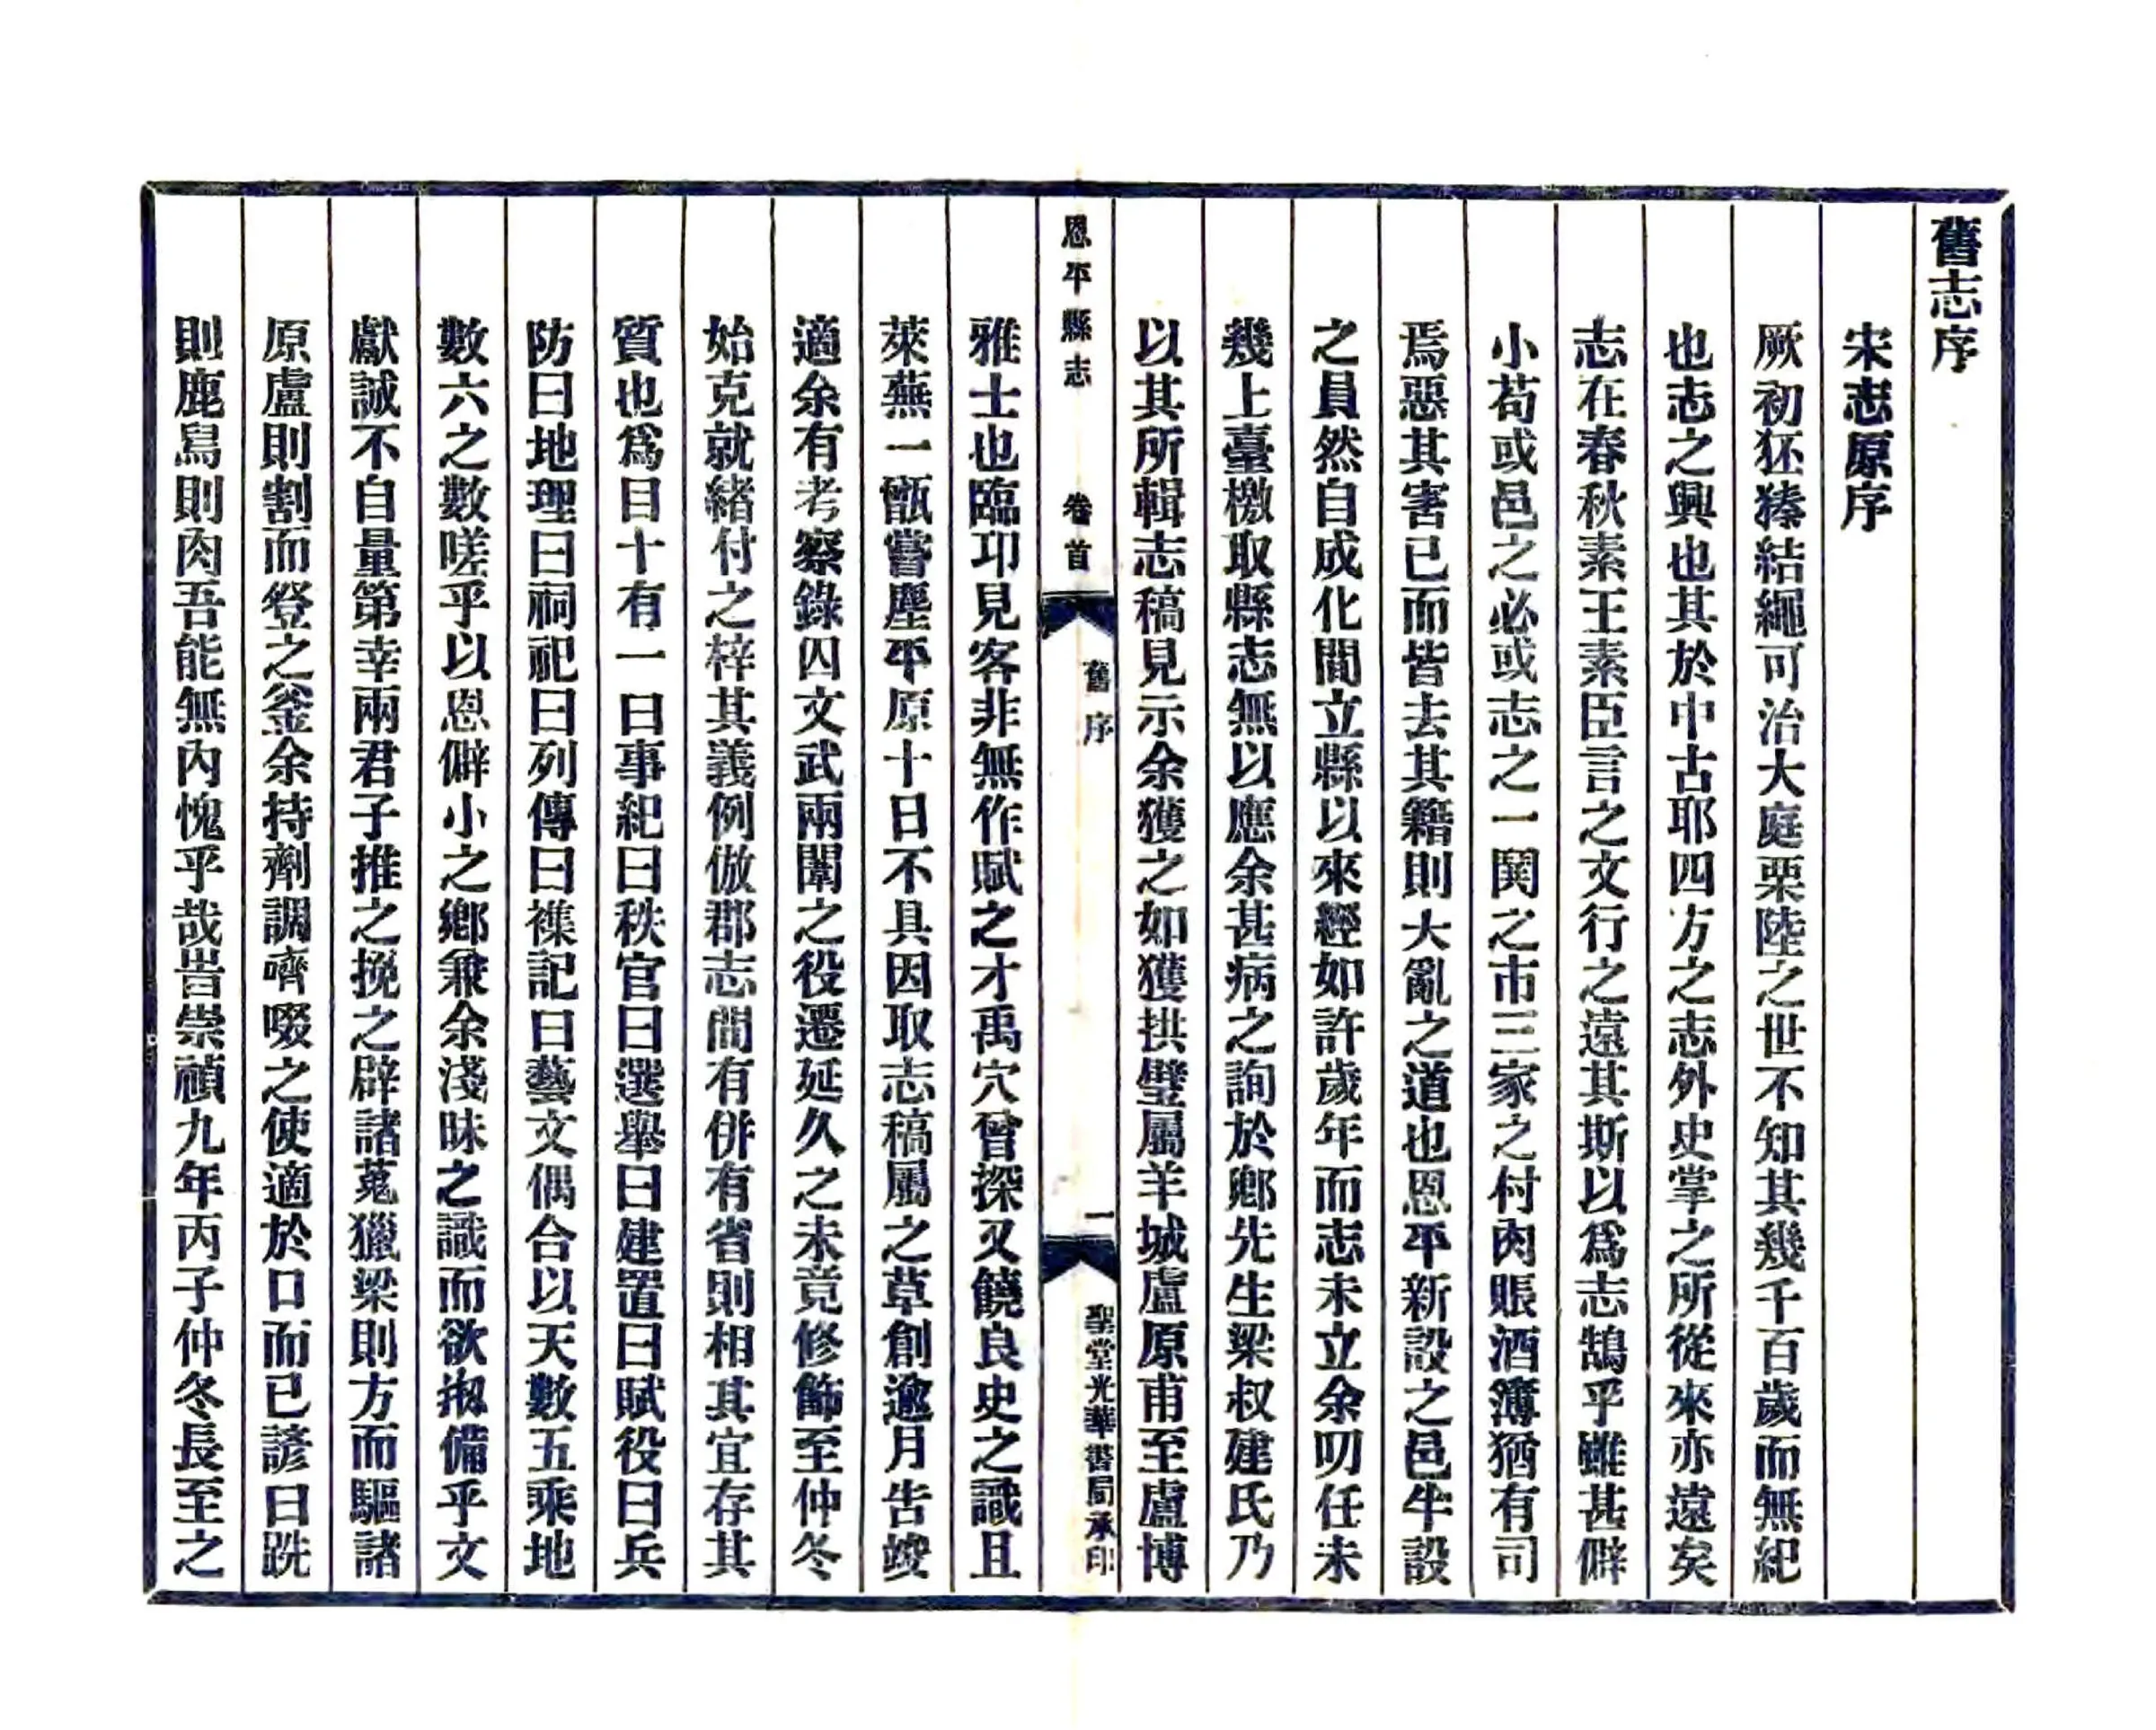 舊志序
宋志原序
厥初狉獉結繩可治大庭栗陸之世不知其幾千百歲而無紀
也志之興也其於中古耶四方之志外史掌之所從來亦遠矣
志在春秋素王素臣言之文行之遠其斯以爲志鵠乎雖甚僻
小苟或邑之必或志之一閧之市三家之付肉賬酒簿猶有司
焉惡其害已而皆去其籍則大亂之道也恩平新設之邑牛設
之員然自成化間立縣以來經如許歲年而志未立余叨任未
幾上臺檄取縣志無以應余甚病之詢於鄉先生梁叔建氏乃
以其所輯志稿見示余獲之如獲拱璧屬羊城盧原甫至盧博
恩平縣志 卷首 舊序 一 聖堂光華書局承印
雅士也臨卭見客非無作賦之才禹穴曾探又饒良史之識且
萊蕪一甑嘗塵平原十日不具因取志稿屬之草創逾月告竣
適余有考察錄囚文武兩闈之役遷延久之未竟修飾至仲冬
始克就緒付之梓其義例倣郡志間有併有省則相其宜存其
質也爲目十有一曰事紀曰秩官曰選舉曰建置曰賦役曰兵
防曰地理曰祠祀曰列傳曰襍記曰藝文偶合以天數五乘地
數六之數嗟乎以恩僻小之鄉兼余淺昧之識而欲㧞備乎文
獻誠不自量第幸兩君子推之挽之辟諸蒐獵梁則方而驅諸
原盧則割而登之釜余持劑調嚌啜之使適於口而已諺曰跣
則鹿舄則肉吾能無內愧乎哉旹崇禎九年丙子仲冬長至之